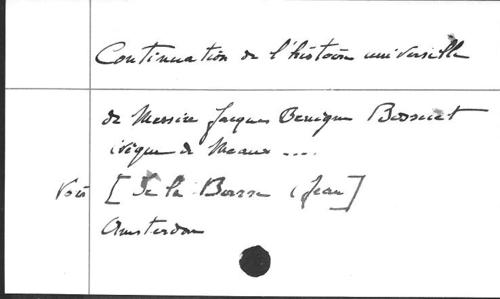 Continuation de l'histoire universelle
de Messire Jacques Benigne Bossuet
évêque de Meaux ....
Voir [De la Barre (Jean]
Amsterdam